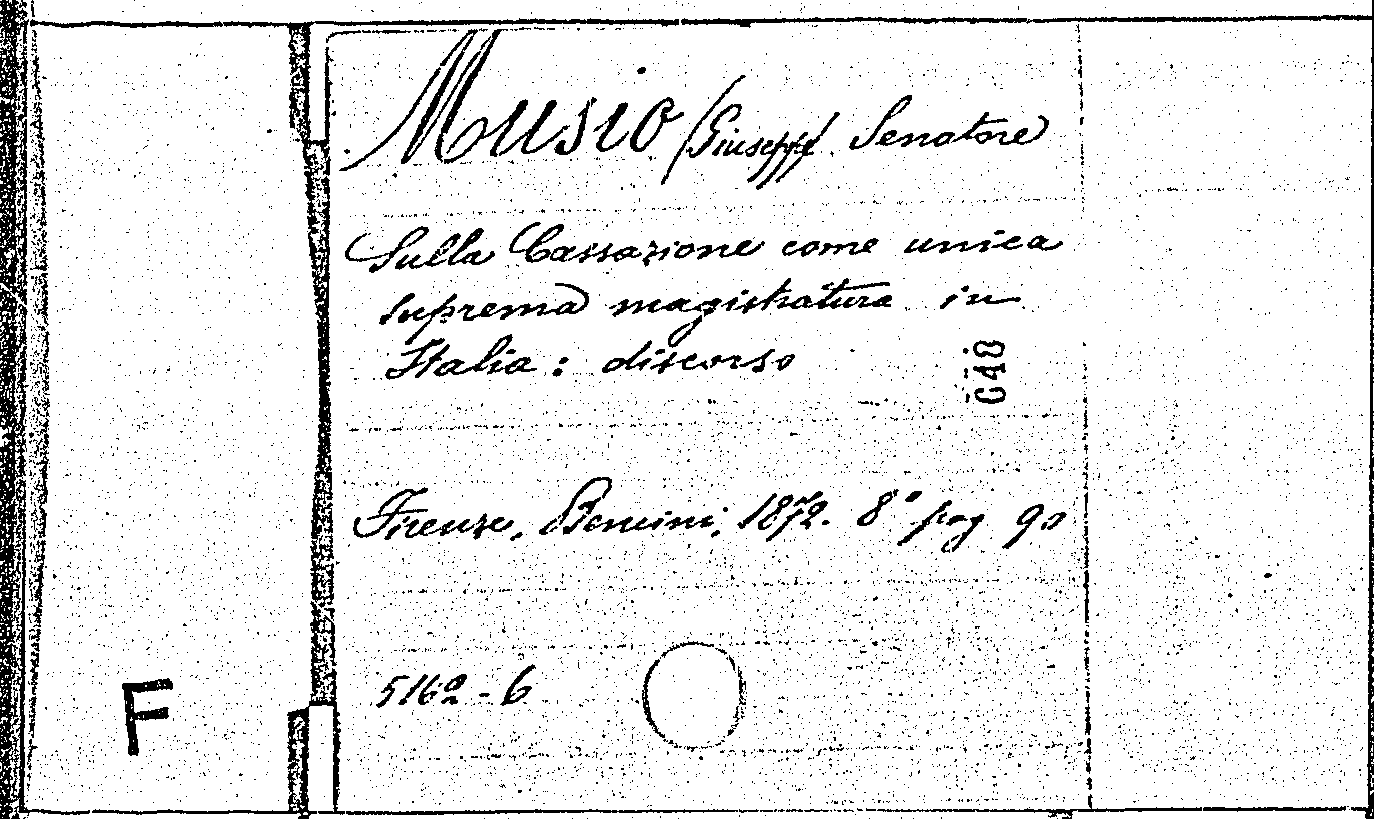 Musio (Giuseppe) Senatore
Sulla Cassazione come unica
suprema magistratura in
Italia : discorso
Firenze, Bencini, 1872. 8° pag 90
5162-6
F